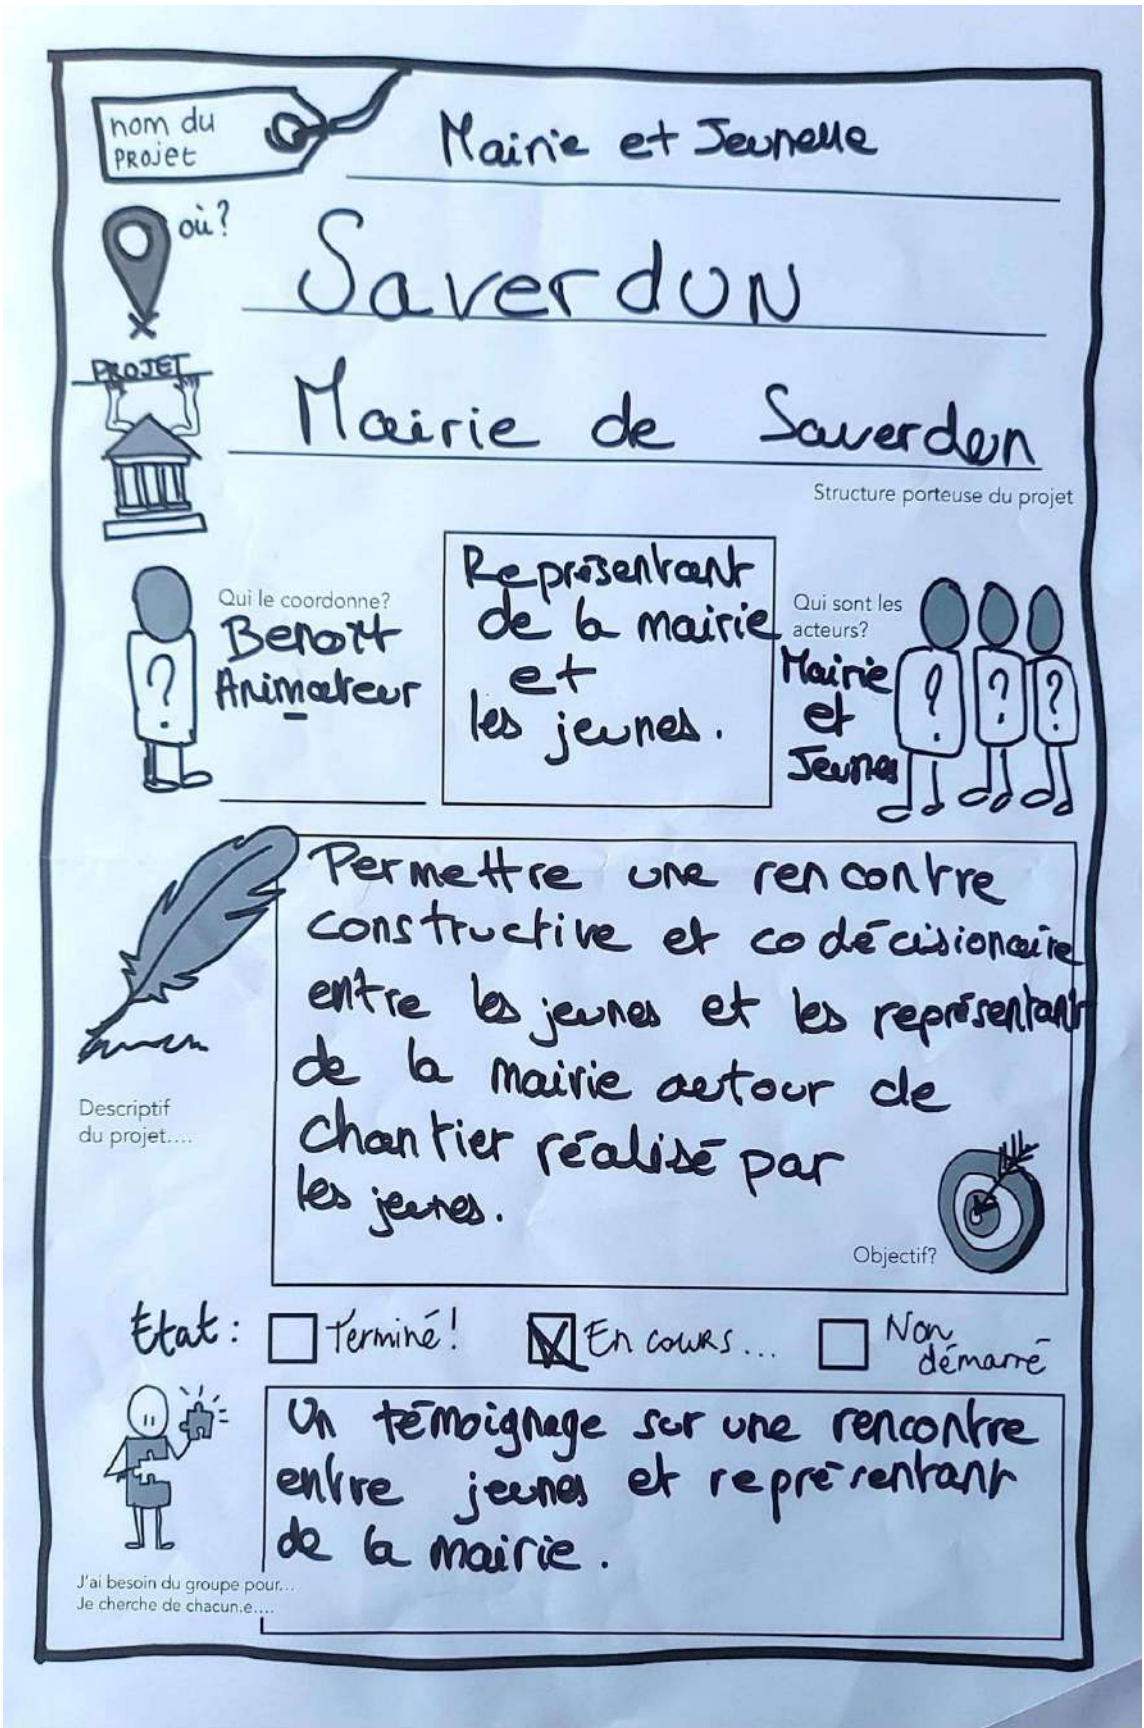 nom du
PROJet
Mairie et Jeunesse
où?
Saverdun
PROJET
Mairie de Saverdun
Structure porteuse du projet
Qui le coordonne?
Benoît
Animateur
Représentant
de la mairie
et
les jeunes.
Qui sont les
acteurs?
Mairie
et
Jeunes
Permettre une rencontre
constructive et codécisionaire
entre les jeunes et les représentant
de la mairie autour de
chantier réalisé par
les jeunes.
Descriptif
du projet....
Objectif?
Etat :
Terminé!
En cours...
Non
démarré
Un témoignage sur une rencontre
entre jeunes et représentant
de la mairie.
J'ai besoin du groupe pour...
Je cherche de chacun.e....